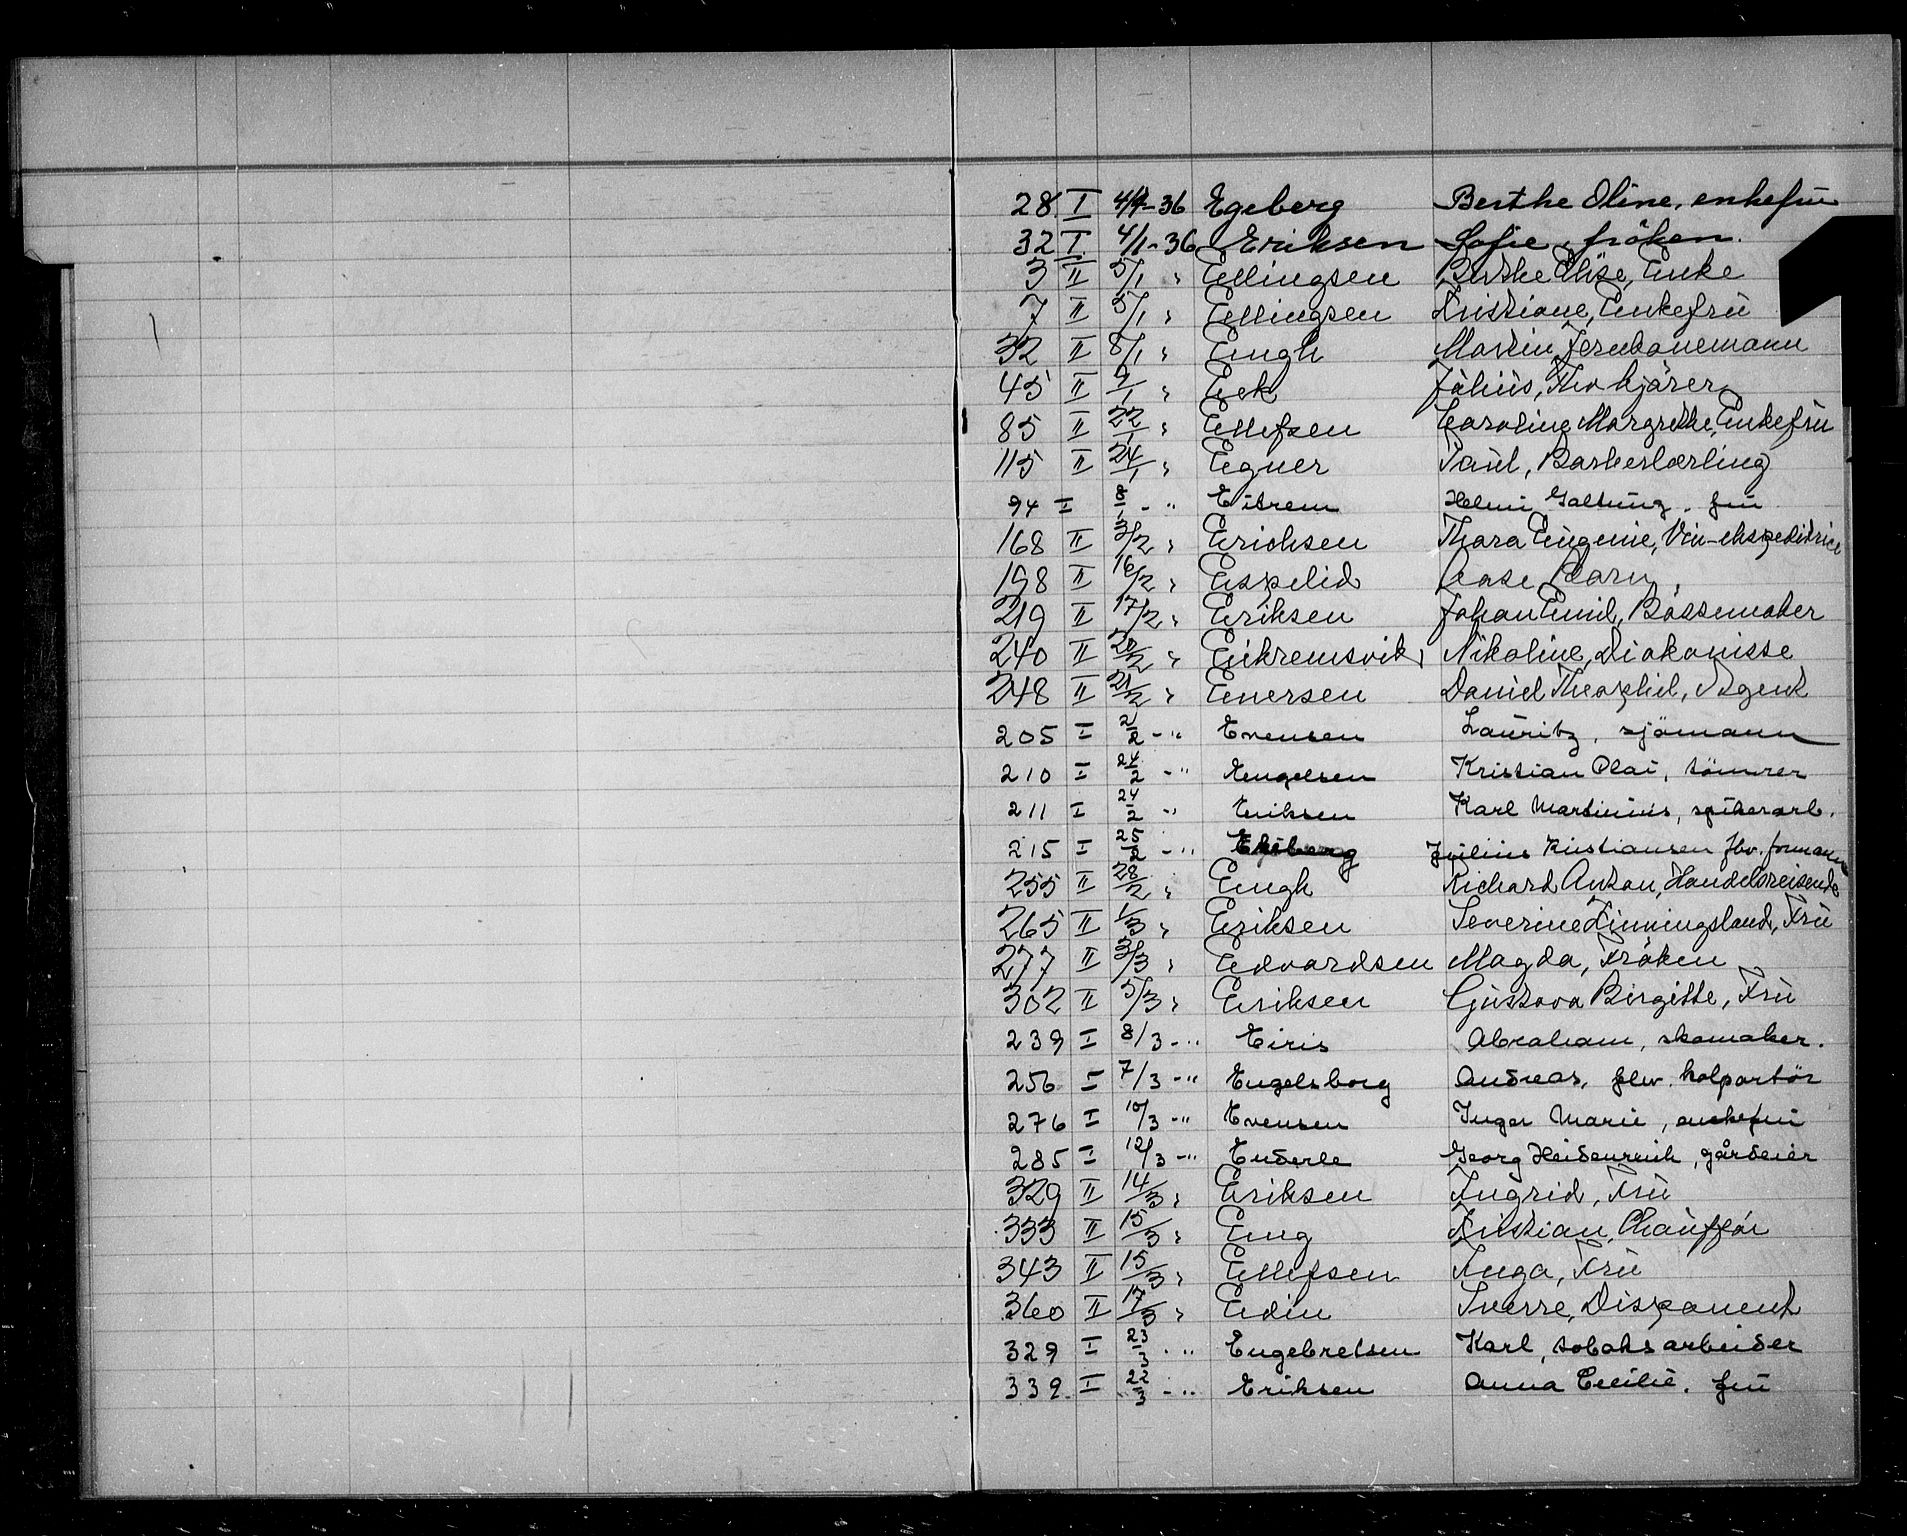 28 I 4/1-36 Egeberg Berthe Oline, enkefru
32 I 4/1-36 Eriksen Sofie, fröken.
3 II 5/1 " Ellingsen Berthe Elise, Enke
7 II 5/1 " Ellingsen Kristiane, Enkefru
32 II 8/1 " Engh Martin Jernbanemann
45 II 9/1 " Eek Julius, Tho kjörer
85 II 22/1 " Ellefsen Caroline Margrethe, Enkefru
115 II 24/1 " Egner Paul, Barberlærling
94 I 8/1 - " Eitrem Helmi Galtung. fru
168 II 3/2 " Erichsen Thora Eugenie, Vin-ekspeditrice
198 II 16/2 " Espelid Aase Karin,
219 II 17/2 " Eriksen Johan Emil, Bössemaker
240 II 20/2 " Eikremsvik, Nikoline, Diakonisse
248 II 21/2 " Enersen Daniel Theophil, Agent
205 I 2/2 - " Evensen Lauritz, sjömann
210 I 24/2 - " Engelsen Kristian Olai, tömrer
211 I 24/2 " Eriksen Karl Martinius, spikerarb.
215 I 25/2 - " Ekeberg Julius Kristiansen fhv. formann
255 II 28/2 " Engh Richard Anton, Handelsreisende
265 II 1/3 " Eriksen Severine Finningsland, Fru
277 II 3/3 " Edvardsen Magda, Fröken
302 II 5/3 " Eriksen Gustava Birgitte, Fru
239 I 8/3 - " Eiris Abraham, skomaker.
256 I 7/3 - " Engelsborg Andreas, fhv. kolportör
276 I 10/3 - " Evensen Inger Marie, enkefru
285 I 12/3 - " Enderle Georg Heidenreich, gårdeier
329 II 14/3 " Eriksen Ingrid, Fru
333 II 15/3 " Eng Kristian, Chaufför
343 II 15/3 " Ellefsen Inga, Fru
360 II 17/3 " Edin Sverre, Disponent
329 I 23/3 - " Engebretsen Karl, tobaksarbeider
339 I 22/3 - " Eriksen Anna Cecilie. fru